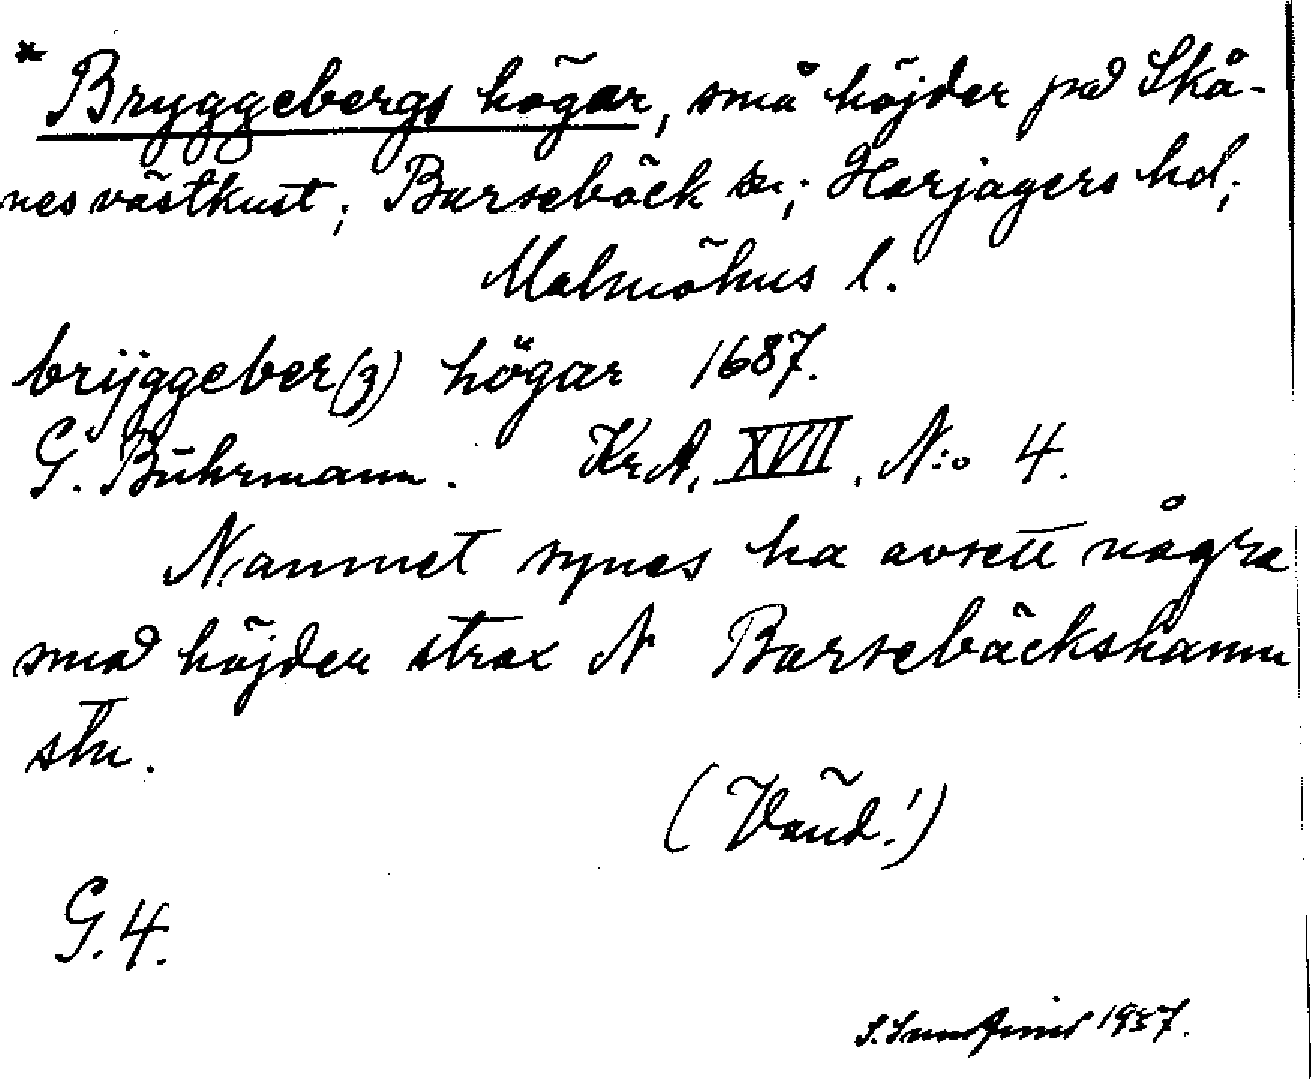 * Bryggebergs högar, små höjder på Skå-
nes västkust; Barsebäck sn; Harjagers hd;
Malmöhus l.
brÿggeber(g) högar 1687.
G. Buhrmann. KrA. XVII. N:o 4.
Namnet synes ha avsett några
små höjder strax N Barsebäckshamn
stn.
(Vänd!)
G.4.
1937.